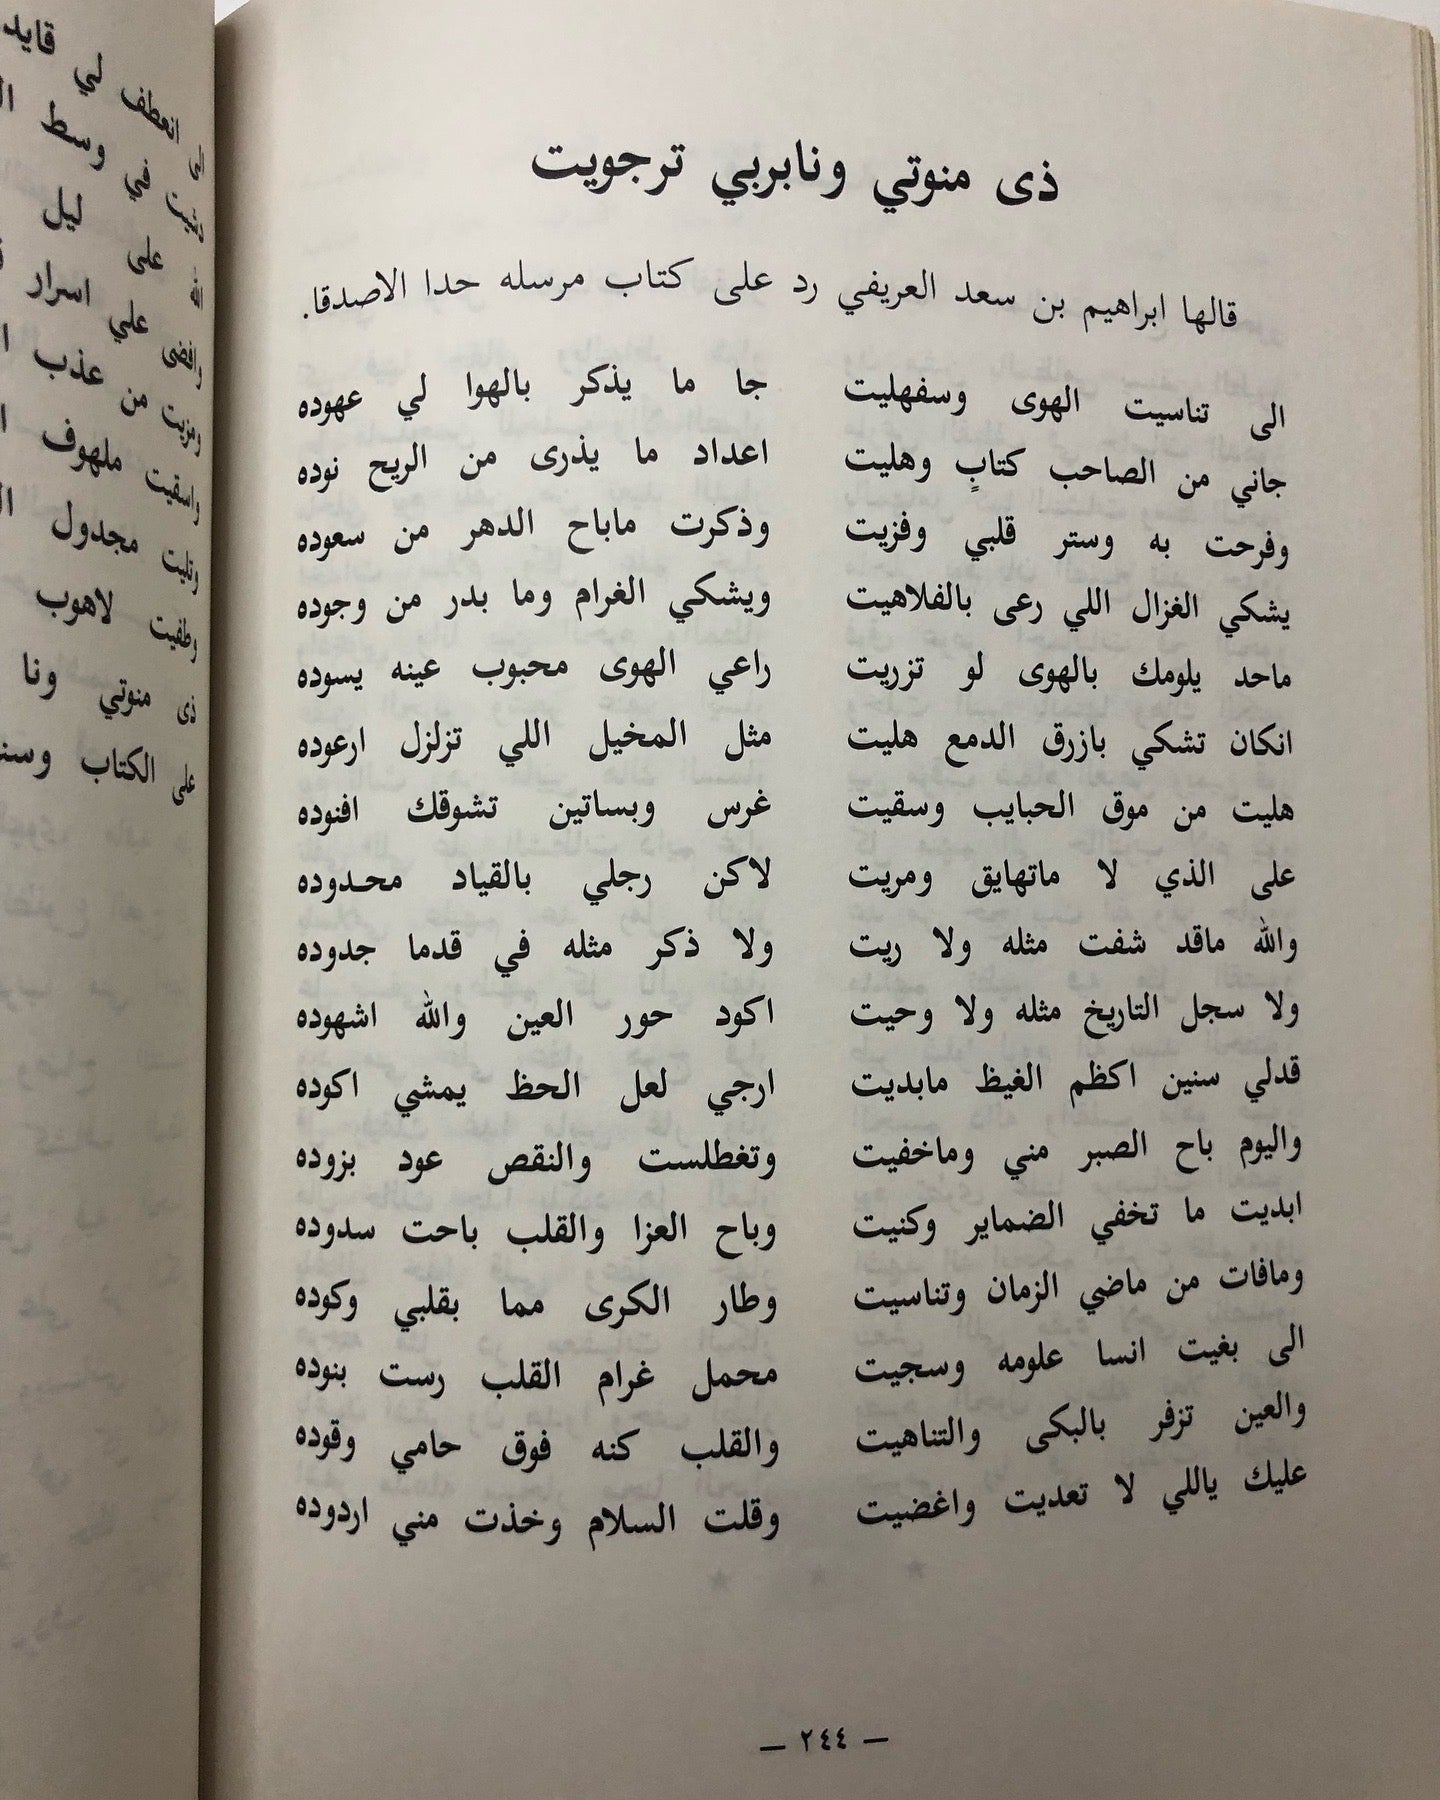 ذى منوتي ونابربي ترجويت
قالها ابراهيم بن سعد العريفي رد على كتاب مرسله حدا الاصدقا.
الى تناسيت الهوى وسفهليت جا ما يذكر بالهوا لي عهوده
جاني من الصاحب كتابٍ وهليت اعداد ما يذرى من الريح نوده
وفرحت به وستر قلبي وفزيت وذكرت ماباح الدهر من سعوده
يشكي الغزال اللي رعى بالفلاهيت ويشكي الغرام وما بدر من وجوده
ماحد يلومك بالهوى لو تزريت راعي الهوى محبوب عينه يسوده
انكان تشكي بازرق الدمع هليت مثل المخيل اللي تزلزل ارعوده
هليت من موق الحبايب وسقيت غرس وبساتين تشوقك افنوده
على الذي لا ماتهايق ومريت لاكن رجلي بالقياد محدوده
والله ماقد شفت مثله ولا ريت ولا ذكر مثله في قدما جدوده
ولا سجل التاريخ مثله ولا وحيت اكود حور العين والله اشهوده
قدلي سنين اكظم الغيظ مابديت ارجي لعل الحظ يمشي اكوده
واليوم باح الصبر مني وماخفيت وتغطلست والنقص عود بزوده
ابديت ما تخفي الضماير وكنيت وباح العزا والقلب باحت سدوده
ومافات من ماضي الزمان وتناسيت وطار الكرى مما بقلبي وكوده
الى بغيت انسا علومه وسجيت محمل غرام القلب رست بنوده
والعين تزفر بالبكى والتناهيت والقلب كنه فوق حامي وقوده
عليك ياللي لا تعديت واغضيت وقلت السلام وخذت مني اردوده
— ٢٤٤ —
الى انعطف لي قايد
في وسط
الله على ليل
وافضى علي اسرار
ومزيت من عذب
واسقيت ملهوف
وتليت مجدول
وطفيت لاهوب
ذى منوتي ونا
على الكتاب